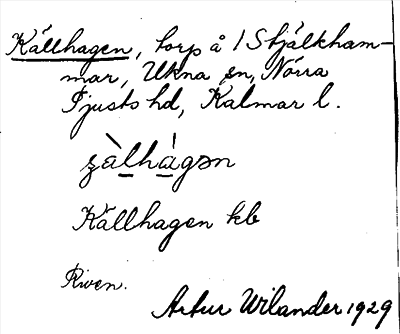 Källhagen, torp å 1 Stjälkham-
mar, Ukna sn, Norra
Tjusts hd, Kalmar l.
Källhagen kb
Riven.
Artur Wilander 1929